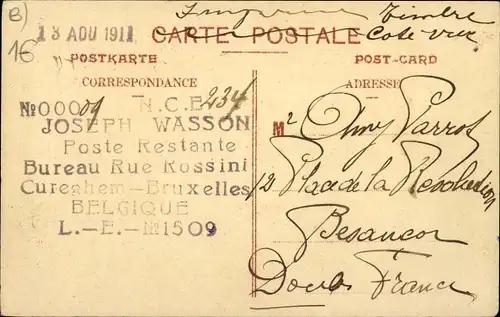 B)
Imprimé Timbre
18 AOU 1911 CARTE POSTALE Cote vue
16
POSTKARTE POST-CARD
CORRESPONDANCE ADRESSE
No 00009 N.C.E. 234
JOSEPH WASSON
Poste Restante
Bureau Rue Rossini
Cureghem—Bruxelles
BELGIQUE
L.—E.—No 1509
Mr Amy Parrot
12 Place de la Révolution
Besançon
Doubs France